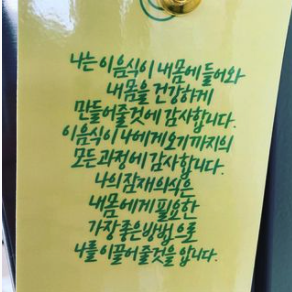 나는 이 음식이 내 몸에 들어와
내 몸을 건강하게
만들어줄 것에 감사합니다.
이 음식이 나에게 오기까지의
모든 과정에 감사합니다.
나의 잠재의식은
내 몸에게 필요한
가장 좋은 방법으로
나를 이끌어 줄 것을 압니다.